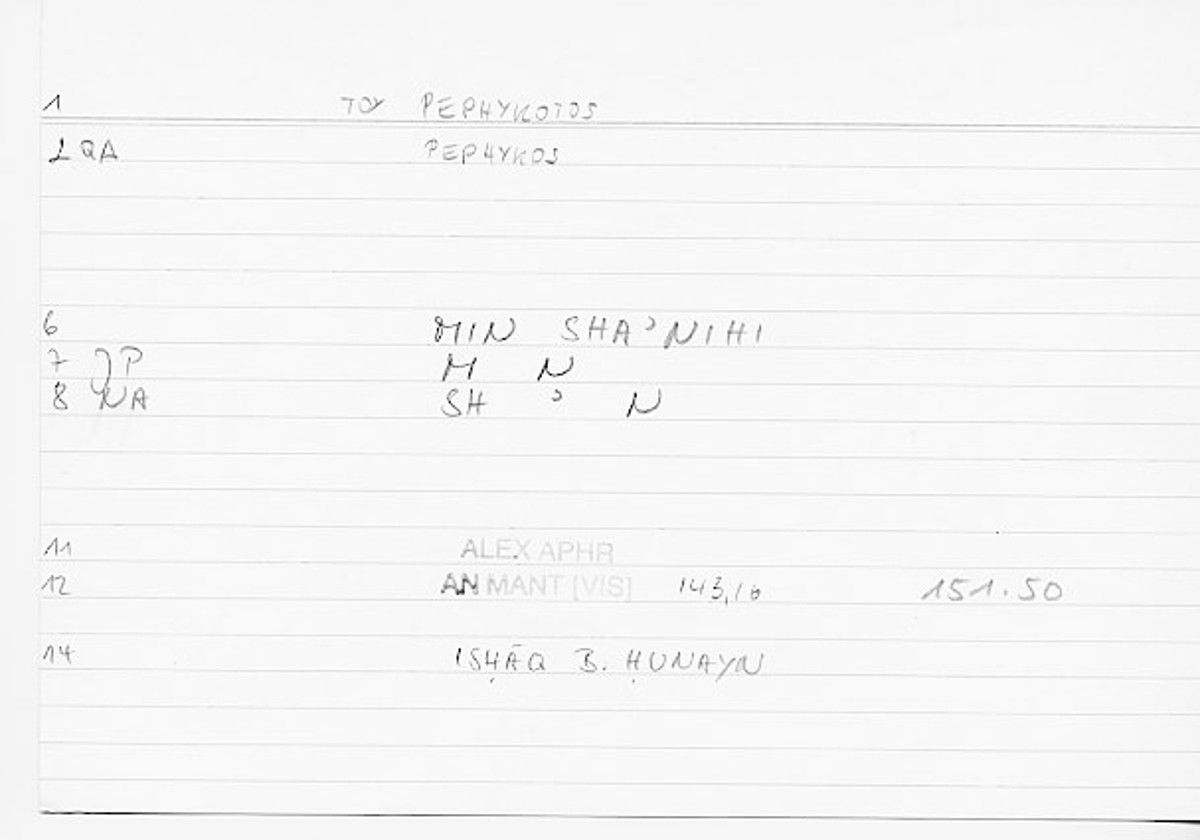 1 TOY PEPHYKOTOS
2 QA PEPHYKOS
6 MIN SHAʾNIHI
7 JP M N
8 NA SH ʾ N
11 ALEX APHR
12 AN MANT [VIS] 143,16 151.50
14 ISḤĀQ B. ḤUNAYN